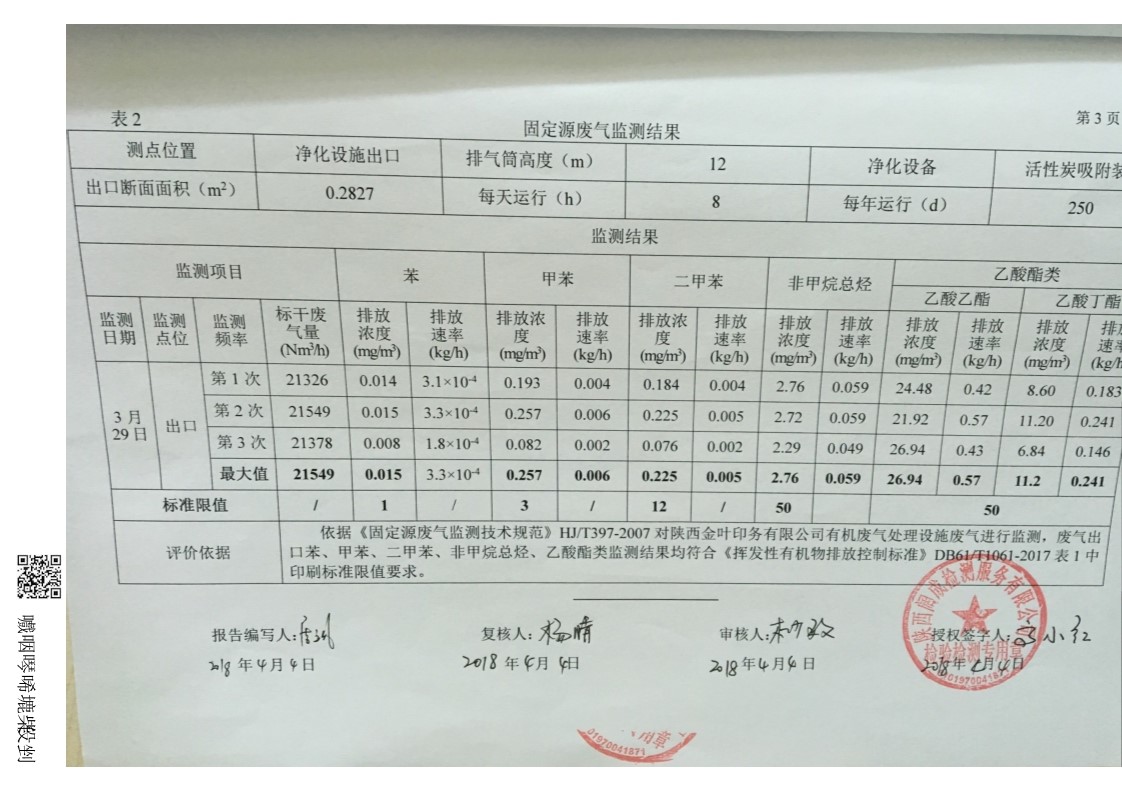 表 2
第 3 页
固定源废气监测结果
测点位置 净化设施出口 排气筒高度（m） 12 净化设备 活性炭吸附装
出口断面面积（m²） 0.2827 每天运行（h） 8 每年运行（d） 250
监测结果
监测项目 苯 甲苯 二甲苯 非甲烷总烃 乙酸酯类
乙酸乙酯 乙酸丁酯
监测日期 监测点位 监测频率 标干废气量(Nm³/h) 排放浓度(mg/m³) 排放速率(kg/h) 排放浓度(mg/m³) 排放速率(kg/h) 排放浓度(mg/m³) 排放速率(kg/h) 排放浓度(mg/m³) 排放速率(kg/h) 排放浓度(mg/m³) 排放速率(kg/h) 排放浓度(mg/m³) 排放速率(kg/h)
3 月 29 日 出口
第 1 次 21326 0.014 3.1×10⁻⁴ 0.193 0.004 0.184 0.004 2.76 0.059 24.48 0.42 8.60 0.183
第 2 次 21549 0.015 3.3×10⁻⁴ 0.257 0.006 0.225 0.005 2.72 0.059 21.92 0.57 11.20 0.241
第 3 次 21378 0.008 1.8×10⁻⁴ 0.082 0.002 0.076 0.002 2.29 0.049 26.94 0.43 6.84 0.146
最大值 21549 0.015 3.3×10⁻⁴ 0.257 0.006 0.225 0.005 2.76 0.059 26.94 0.57 11.2 0.241
标准限值 / 1 / 3 / 12 / 50 50
评价依据
依据《固定源废气监测技术规范》HJ/T397-2007 对陕西金叶印务有限公司有机废气处理设施废气进行监测，废气出
口苯、甲苯、二甲苯、非甲烷总烃、乙酸酯类监测结果均符合《挥发性有机物排放控制标准》DB61/T1061-2017 表 1 中
印刷标准限值要求。
报告编写人： 复核人：杨晴 审核人： 授权签字人：小红
2018 年 4 月 4 日 2018 年 4 月 4 日 2018 年 4 月 4 日 2018 年 4 月 4 日
检验检测专用章
用章